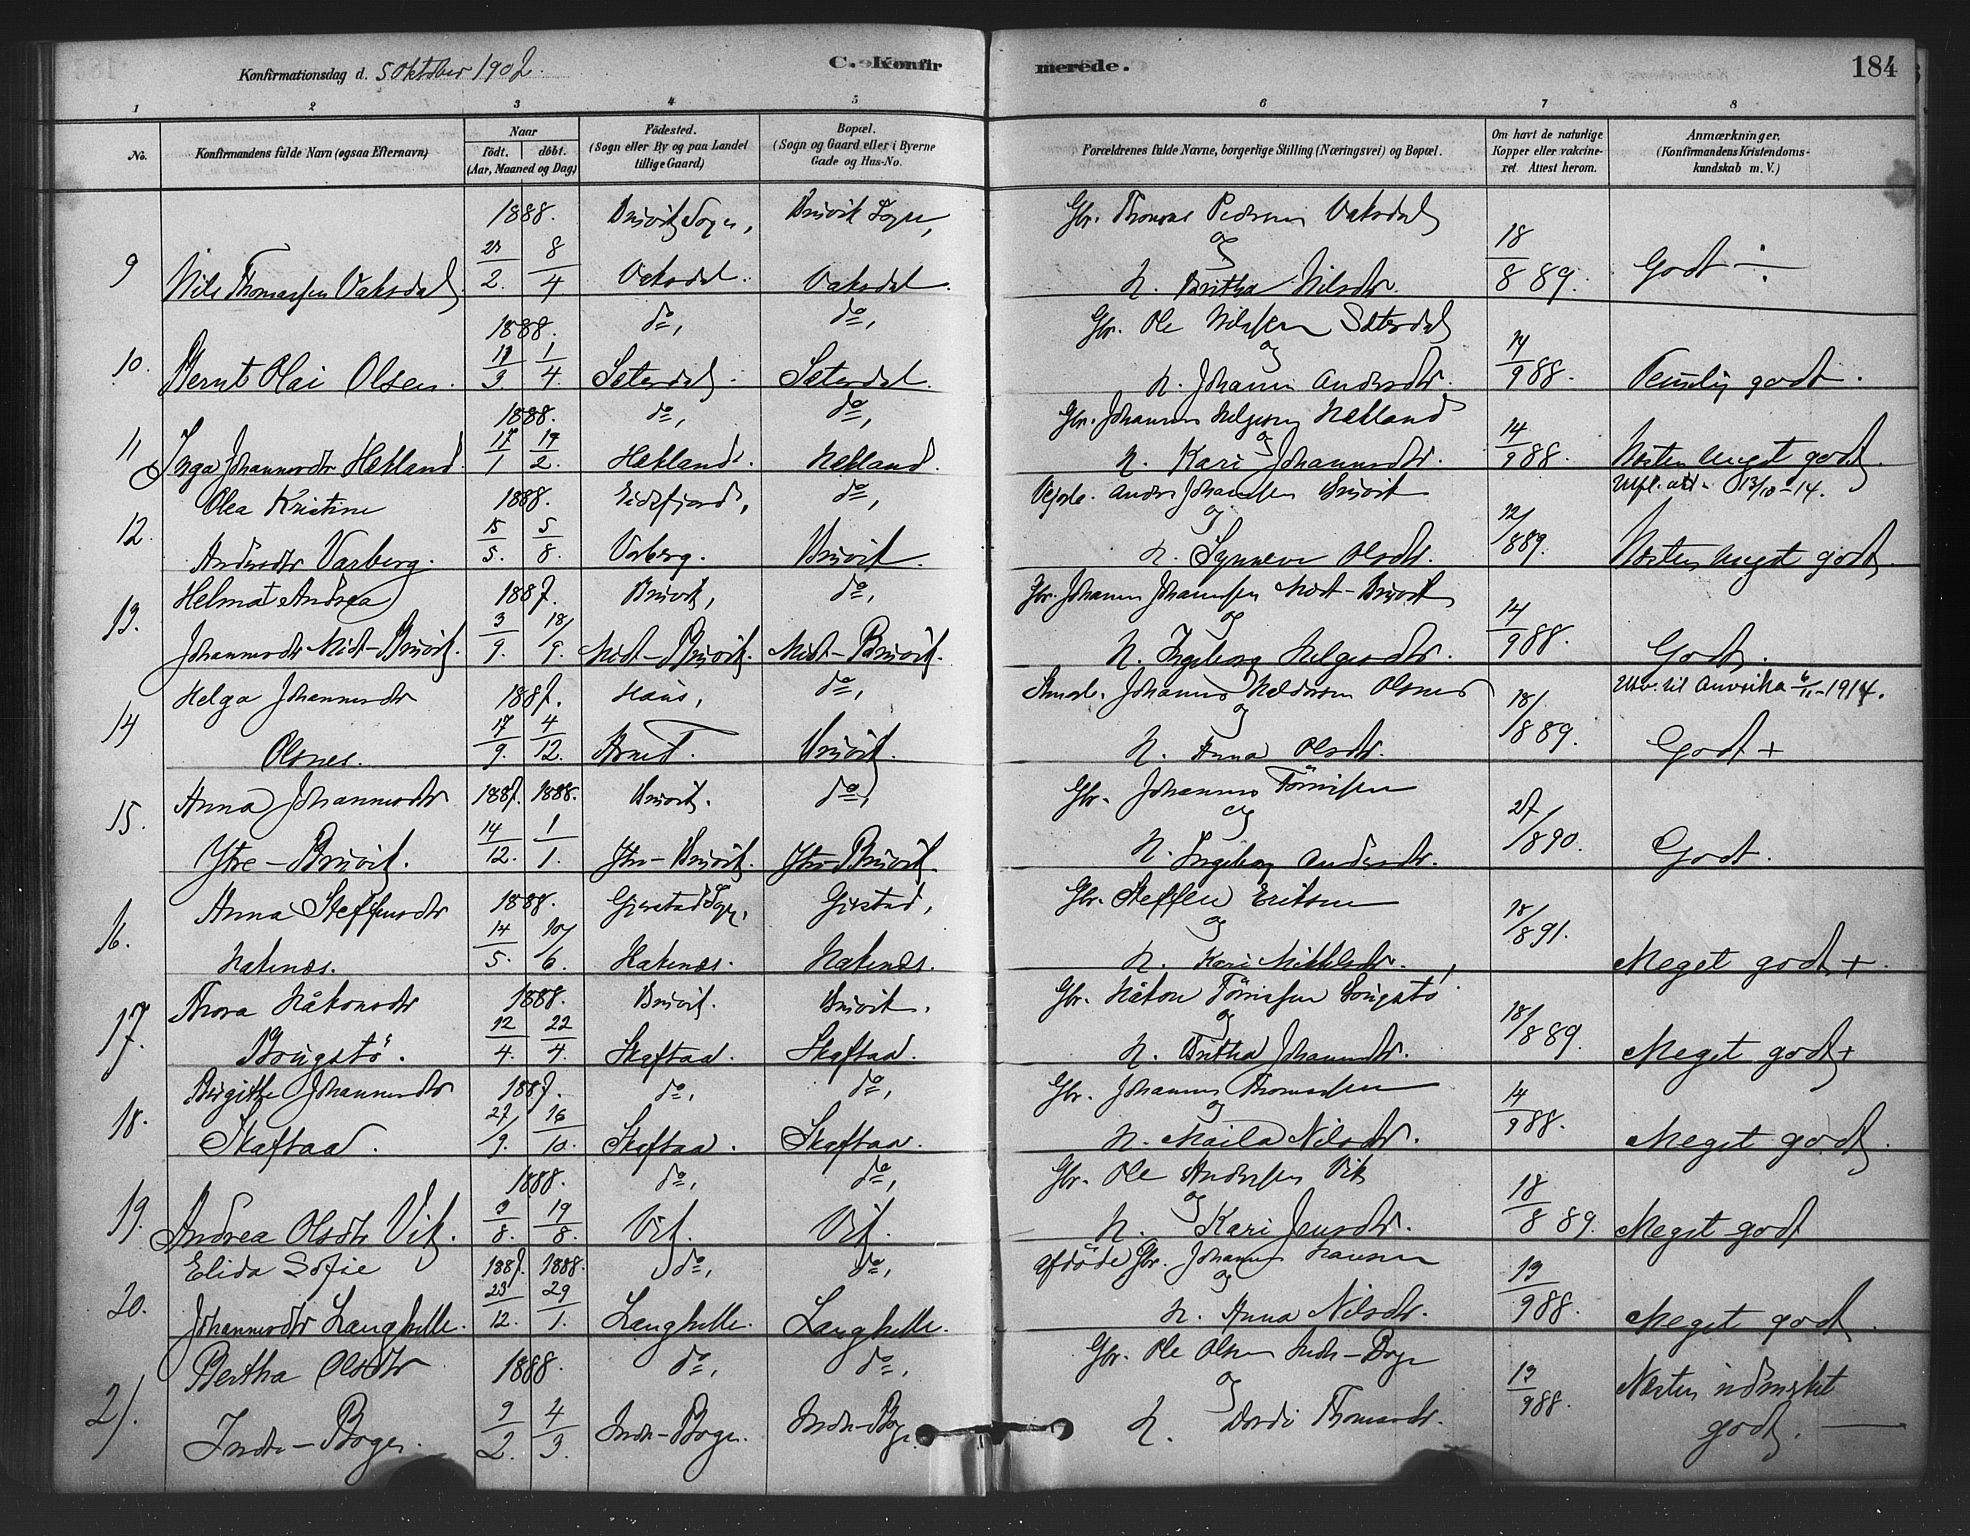 Konfirmationsdag d. 5 Oktober 1902.
C. Konfirmerede.
184
1 2 3 4 5 6 7 8
No.
Konfirmandens fulde Navn (ogsaa Efternavn)
Naar
födt. döbt.
(Aar, Maaned og Dag)
Födested.
(Sogn eller By og paa Landet
tillige Gaard)
Bopæl.
(Sogn og Gaard eller i Byerne
Gade og Hus-No.
Forældrenes fulde Navne, borgerlige Stilling (Næringsvei) og Bopæl.
Om havt de naturlige
Kopper eller vakcine-
ret. Attest herom.
Anmærkninger.
(Konfirmandens Kristendoms-
kundskab m. V.)
1888. Bruvik Sogn, Bruvik Sogn, Gbr. Thomas Pedersen Vaksdal
og
9 Nils Thomassen Vaksdal. 2. 8/4 Vaksdal. Vaksdal. H. Britha Nilsdtr. 18/8 89. Godt ÷
1888. do, do, Gbr. Ole Nilssen Sæterdal
og
10. Bernt Olai Olsen. 11/3 1/4 Seterdal. Seterdal. H. Johanna Andersdtr. 14/9 88. Temlig godt.
1888. do, do, Gbr. Johannes Helgesen Hætland
og
11 Inga Johannesdtr Hetland. 17/1 19/2. Hetland. Hetland. H. Kari Johannesdtr. 14/9 88. Næsten meget godt.
Olea Kristine 1888. Eidsfjord, do, Anders Johannessen Bruvik 13/10-14.
og
12. Andersdtr Varberg. 15/5. 5/8. Varberg. Bruvik. H. Synneve Olsdtr. 12/8 89. Næsten meget godt.
Helma Andrea 1887. Bruvik, do, Gbr. Johannes Johannessen Midt-Bruvik
og
13. Johannesdtr Midt-Bruvik. 3/9. 18/9. Midt-Bruvik. Midt-Bruvik. H. Ingeborg Helgesdtr. 14/9 88. Godt.
Helga Johannesdtr 1887. Haus, do, Johannes Olsnes Utv. til Amerika 6/11-1914.
og
14 Olsnes. 17/9. 4/12. Arne. Bruvik. H. Anna Olsdtr. 18/8 89. Godt +
Anna Johannesdtr 1887. 1888. Bruvik. do, Gbr. Johannes Törrissen
og
15. Ytre-Bruvik. 14/12. 1/1. Ytre-Bruvik. Ytre-Bruvik. H. Ingeborg Andersdtr. 27/8 90. Godt.
Anna Steffensdtr 1888. Gjerstad Sogn, Gjerstad, Gbr. Steffen Eriksen
og
16. Hakenæs. 14/5. 20/6. Hakenæs. Hakenæs. H. Kari Mikkelsdtr. 18/8 91. Meget godt +.
Thora Håkonsdtr 1888. Bruvik. Bruvik. Gbr. Håkon Törrissen Bougstö
og
17. Bougstö. 12/4. 22/4. Skaftaa. Skaftaa. H. Britha Johannesdtr. 18/8 89. Meget godt +
Birgitte Johannesdtr 1887. do, do, Gbr. Johannes Thomassen
og
18. Skaftaa. 27/9. 16/10. Skaftaa. Skaftaa. H. Maila Nilsdtr. 14/9 88. Meget godt.
1888. do, do, Gbr. Ole Anderssen Vik
og
19. Andrea Olsdtr Vik. 3/8. 19/8. Vik. Vik. H. Kari Jensdtr. 18/8 89. Meget godt
Elida Sofie 1887. 1888. do, do, Afdöde Gbr. Johannes Hansen
og
20. Johannesdtr Langhelle. 23/12. 29/1. Langhelle. Langhelle. H. Anna Nilsdtr. 13/9 88. Meget godt.
Bertha Olsdtr 1888. do, do, Gbr. Ole Olsen Indre-Boge Næsten udmerket
og
21. Indre-Boge. 9/2. 4/3. Indre-Boge. Indre-Boge. H. Dordi Thomasdtr. 13/9 88. godt.